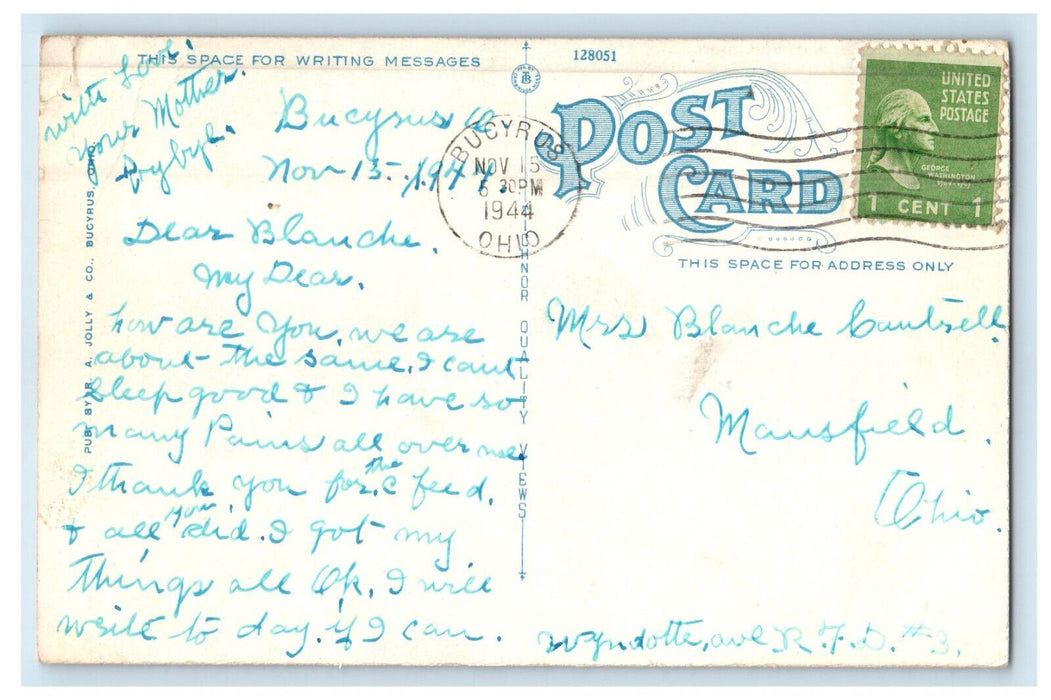 THIS SPACE FOR WRITING MESSAGES
128051
POST
CARD
THIS SPACE FOR ADDRESS ONLY
UNITED
STATES
POSTAGE
GEORGE
WASHINGTON
1 CENT 1
BUCYRUS
NOV 15
30PM
1944
OHIO
PUB. BY R. A. JOLLY & CO., BUCYRUS, OHIO.
QUALITY VIEWS
Bucyrus O
Nov 15. 1944
Dear Blanche.
My Dear.
how are you, we are
about the same. I cant
sleep good & I have so
many Pains all over me
I thank you for the c feed.
& all you did. I got my
Things all Ok. I will
write to day if I can.
with Love
your Mother.
Mrs Blanche Cantrell
Mansfield.
Ohio.
Wyndotte, ave R. F. D. #3.